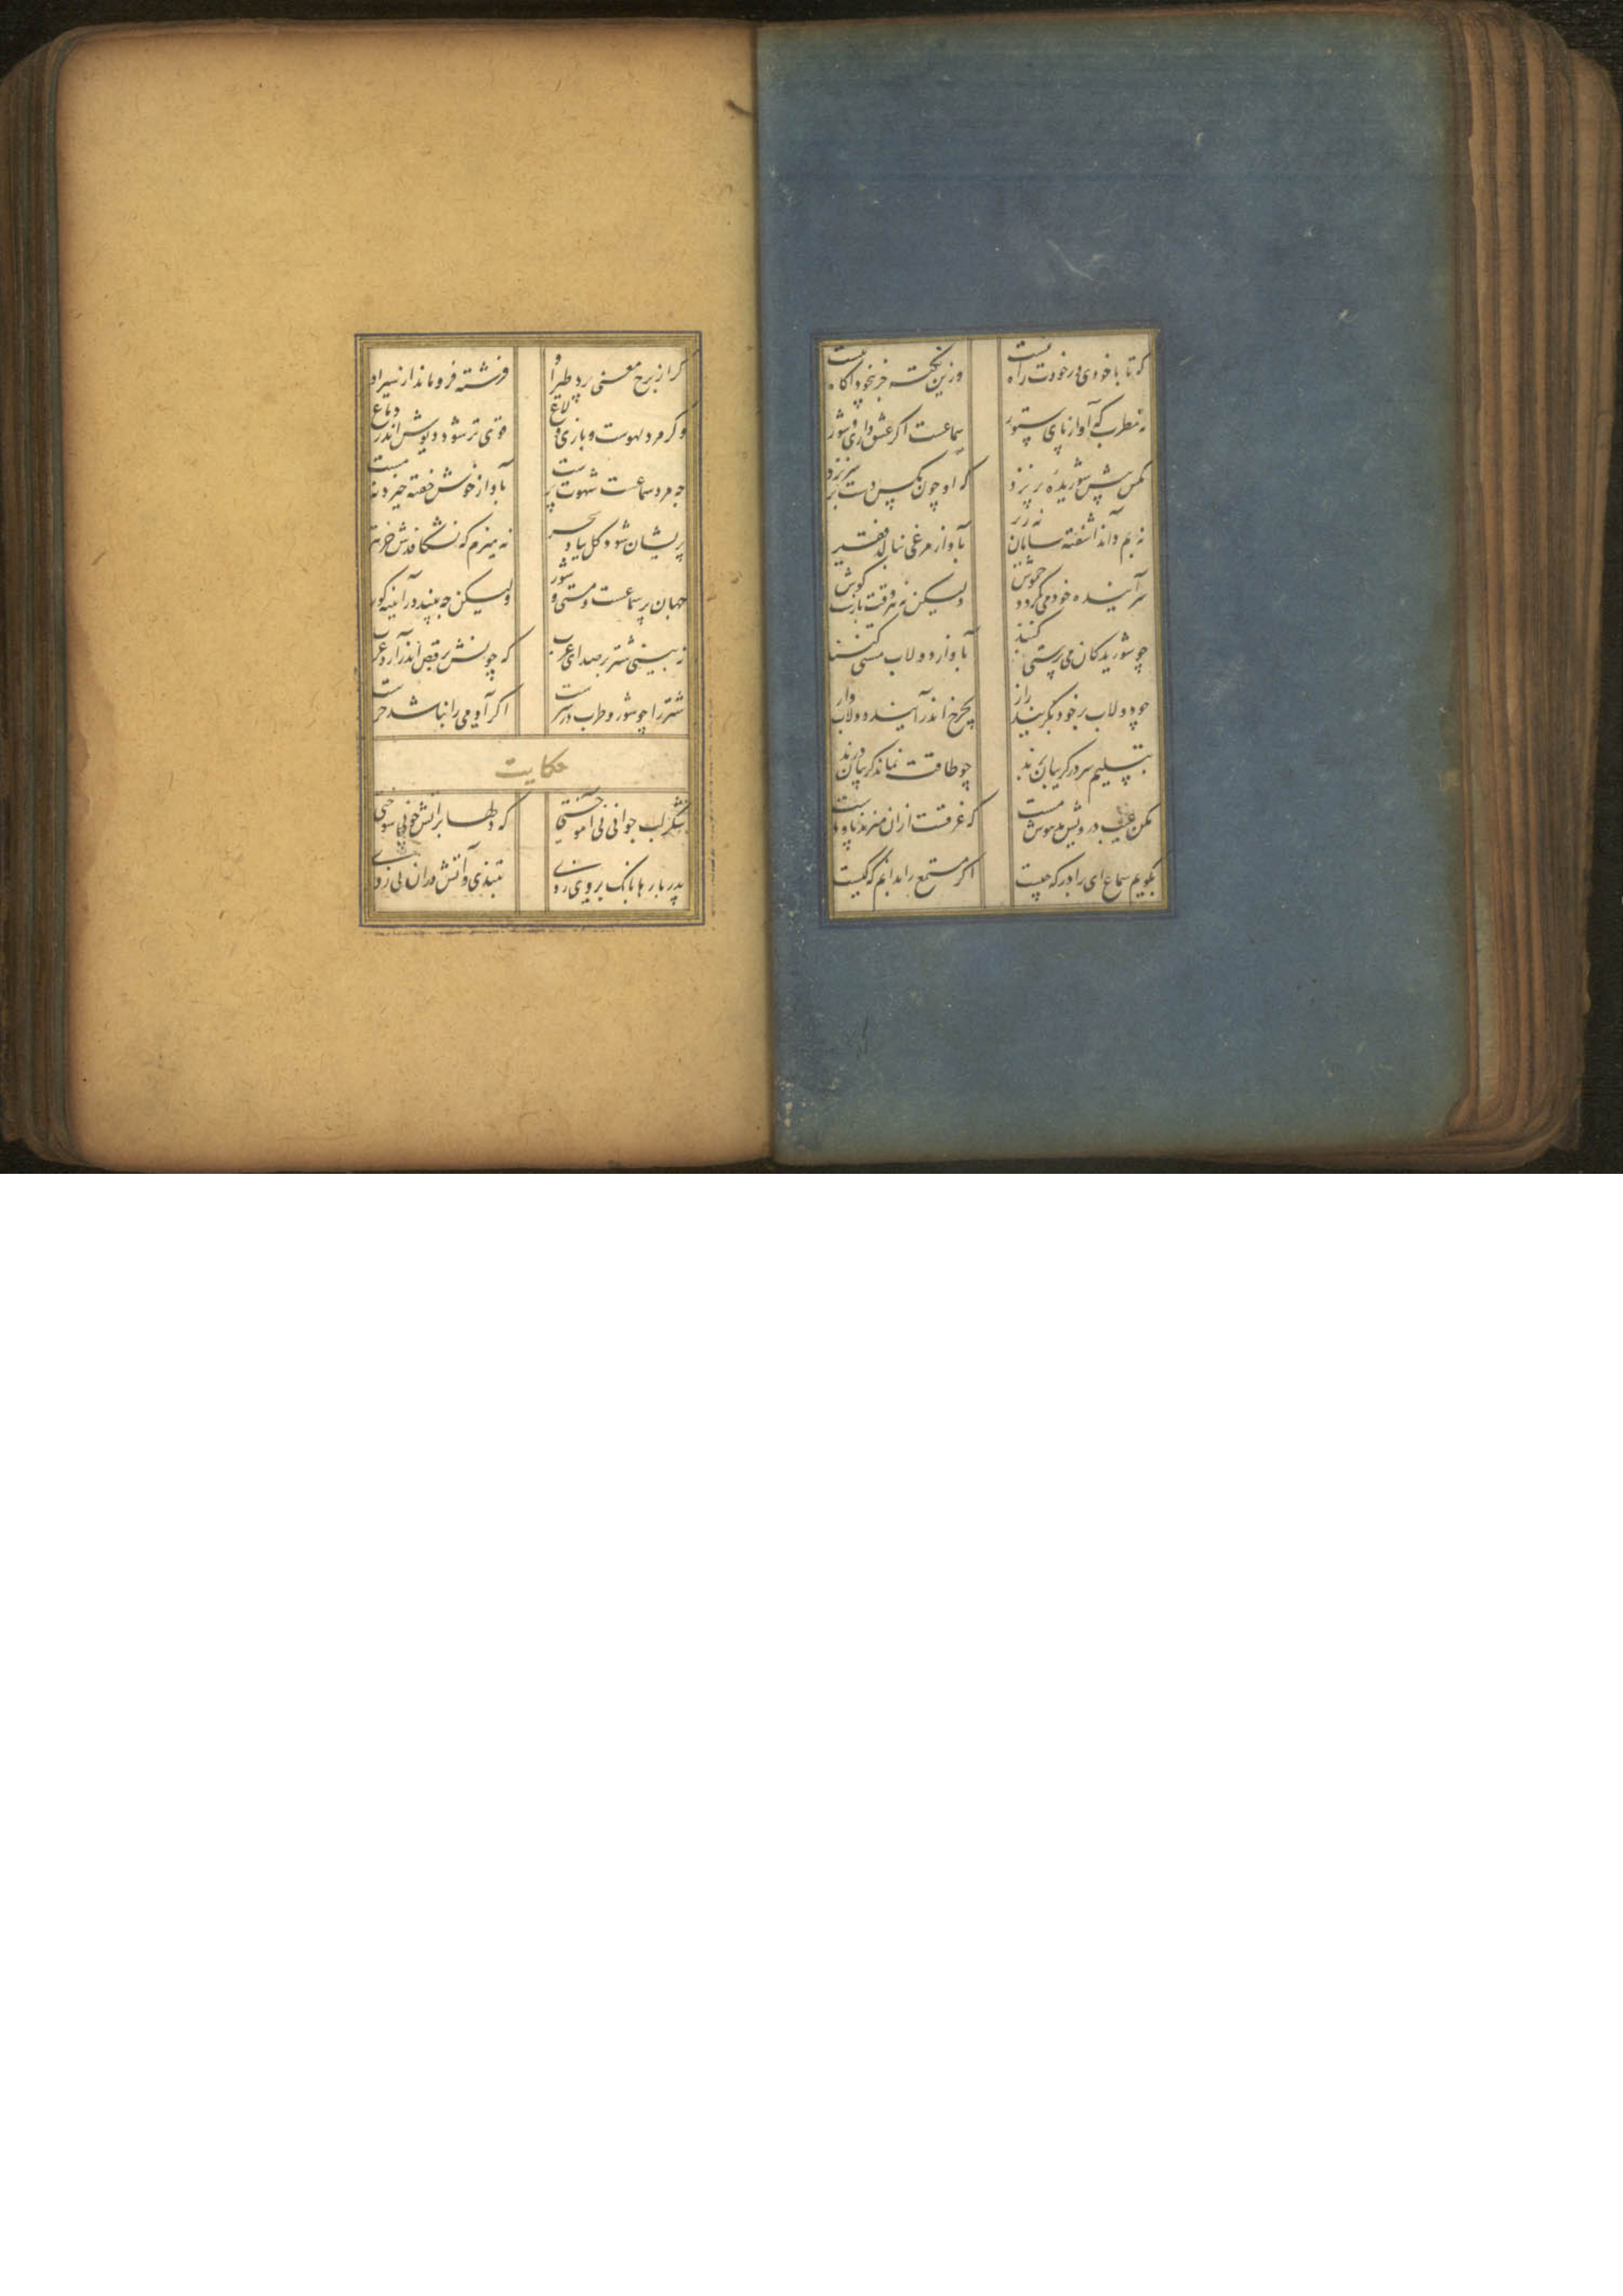 که تا با خودی در خودت راه نیست وزین نکته جز بیخود آگاه نیست
نه مطرب که آواز پای ستور سماعست اگر عشق داری و شور
مگس پیش شوریده پر نزد که او چون مگس دست بر سر نزد
نه بم داند آشفته سامان نه زیر بآواز مرغی بنالد فقیر
سراینده خود می نگردد خموش ولیکن نه هر وقت بازست گوش
چو شوریدگان می پرستی کنند بآواز دولاب مستی کنند
بچرخ اندر آیند دولاب وار چو دولاب بر خود بگریند زار
بتسلیم سر در گریبان برند چو طاقت نماند گریبان درند
مکن عیب درویش مدهوش مست که غرقست ازان میزند پا و دست
بگویم سماع ای برادر که چیست اگر مستمع را بدانم که کیست
گر از برج معنی پرد طیر او فرشته فرو ماند از سیر او
وگر مرد لهوست و بازی و لاغ قوی تر شود دیوش اندر دماغ
چه مرد سماعست شهوت پرست بآواز خوش خفته خیزد نه مست
پریشان شود گل بباد سحر نه هیزم که نشکافدش جز تبر
جهان پر سماعست و مستی و شور ولیکن چه بیند در آیینه کور
نبینی شتر بر صدای عرب که چونش برقص اندر آرد طرب
شتر را چو شور و طرب در سرست اگر آدمی را نباشد خرست
حکایت
شکر لب جوانی نی آموختی که دلها بر آتش چو نی سوختی
پدر بارها بانک بر وی زدی بتندی و آتش دران نی زدی